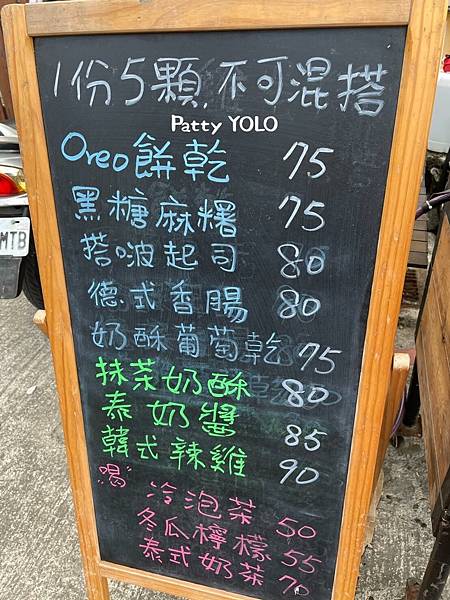 1份5顆,不可混搭
Patty YOLO
Oreo餅乾 75
黑糖麻糬 75
搭啵起司 80
德式香腸 80
奶酥葡萄乾 75
抹茶奶酥 80
泰奶醬 85
韓式辣雞 90
"喝"
冷泡茶 50
冬瓜檸檬 55
泰式奶茶 70
MTB